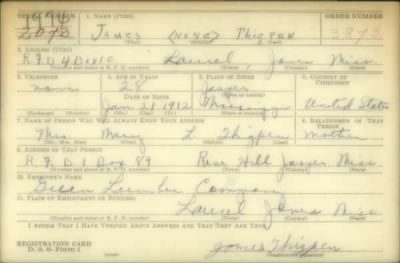 SERIAL NUMBER 1. NAME (Print) ORDER NUMBER
JAMES (NONE) THIGPEN 3873
2. ADDRESS (Print)
R.F.D 4 Box 10 Laurel Jones Miss.
3. TELEPHONE 4. AGE IN YEARS 5. PLACE OF BIRTH 6. COUNTRY OF CITIZENSHIP
none 28 Jasper
DATE OF BIRTH
Jan 21 1912 Mississippi United States
7. NAME OF PERSON WHO WILL ALWAYS KNOW YOUR ADDRESS 8. RELATIONSHIP OF THAT PERSON
Mrs Mary L. Thigpen Mother
9. ADDRESS OF THAT PERSON
R.F.D 1 Box 89 Rose Hill Jasper Miss
10. EMPLOYER'S NAME
Lumber Company
11. PLACE OF EMPLOYMENT OR BUSINESS
Laurel Jones Miss
I AFFIRM THAT I HAVE VERIFIED ABOVE ANSWERS AND THAT THEY ARE TRUE.
REGISTRATION CARD
D. S. S. Form 1 James Thigpen